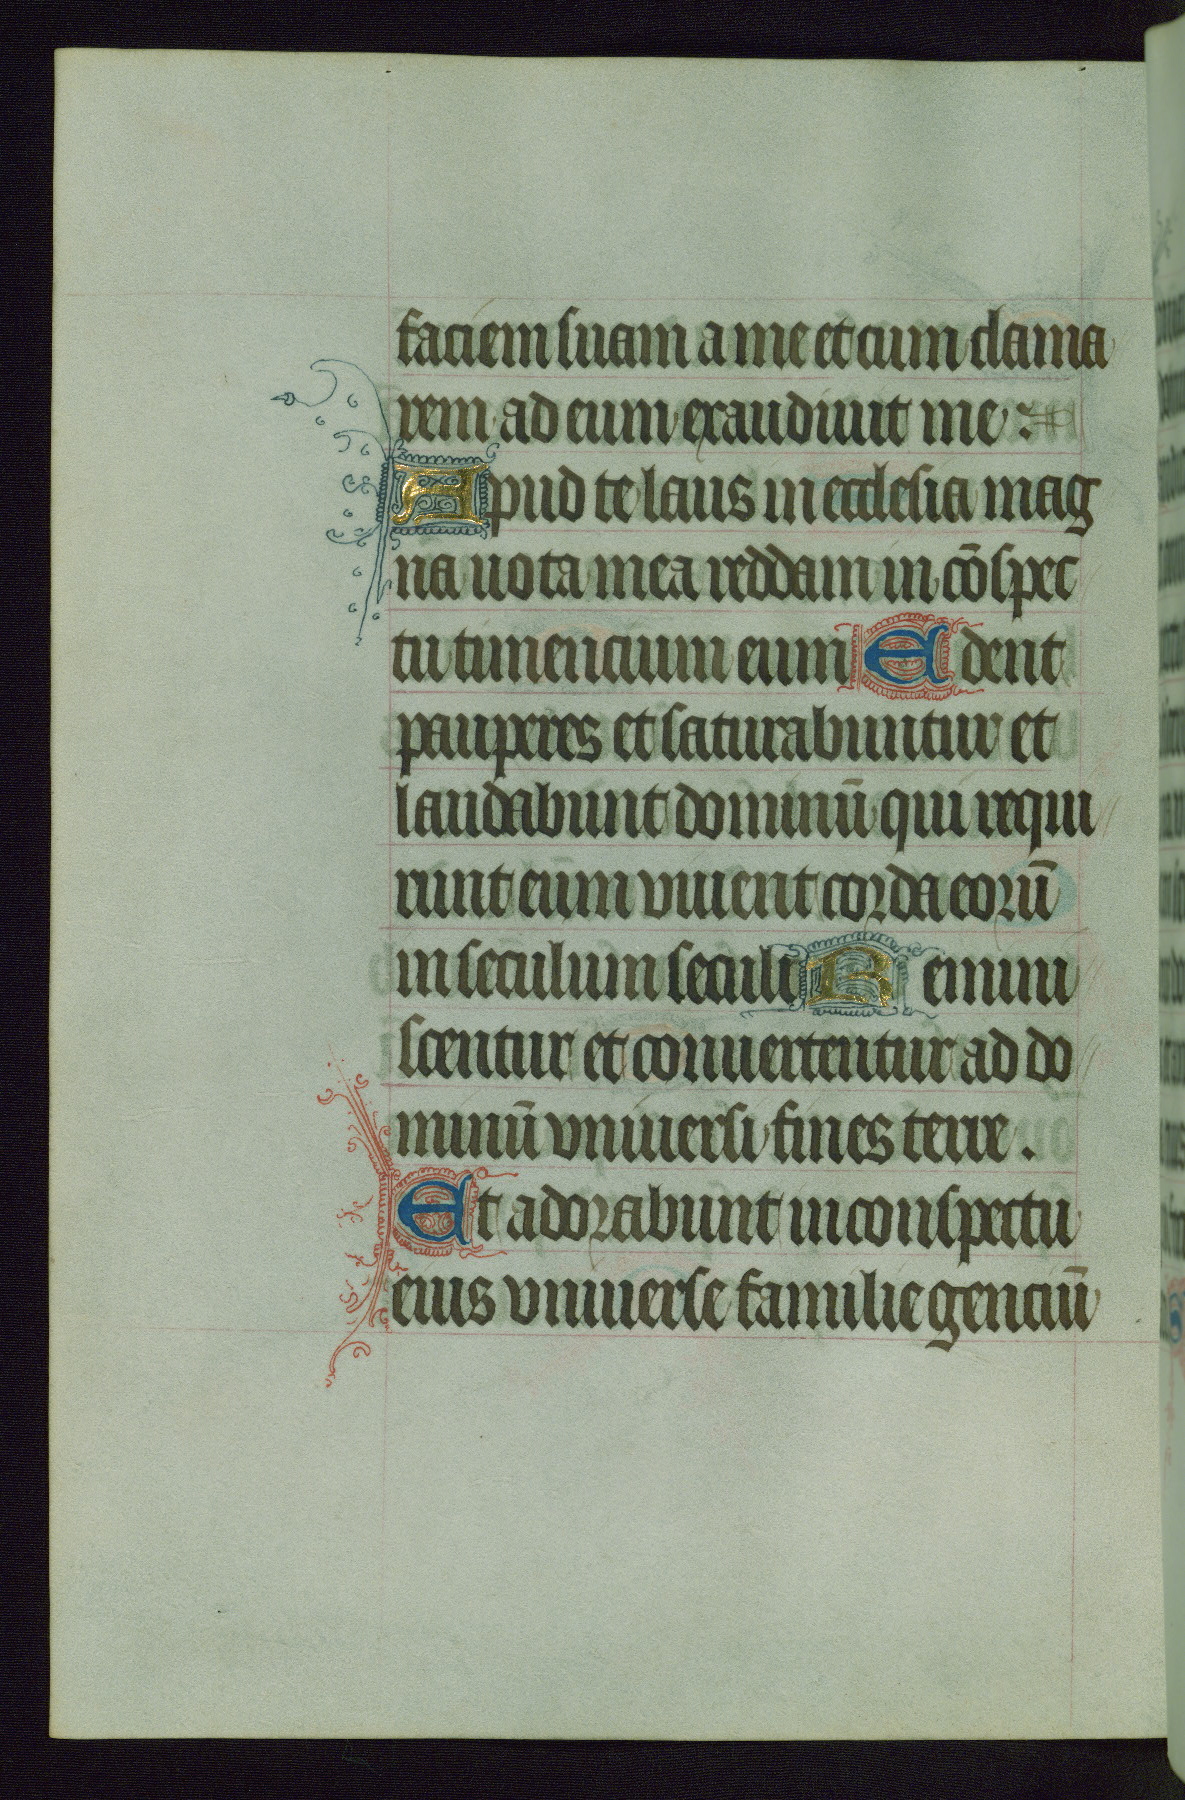 faciem suam a me et cum clama
rem ad eum exaudiuit me :
Apud te laus in ecclesia mag
na uota mea reddam in cōspec
tu timencium eum Edent
pauperes et saturabuntur et
laudabunt dominū qui requi
runt eum viuent corda eorū
in seculum seculi Remini
scentur et conuertentur ad do
minū vniuersi fines terre .
Et adorabunt in conspectu
eius vniuerse familie genciū